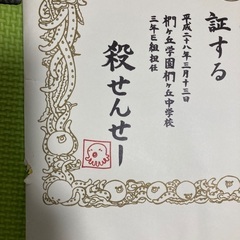 証する
平成二十八年三月十三日
椚ヶ丘学園椚ヶ丘中学校
三年E組担任
殺せんせー